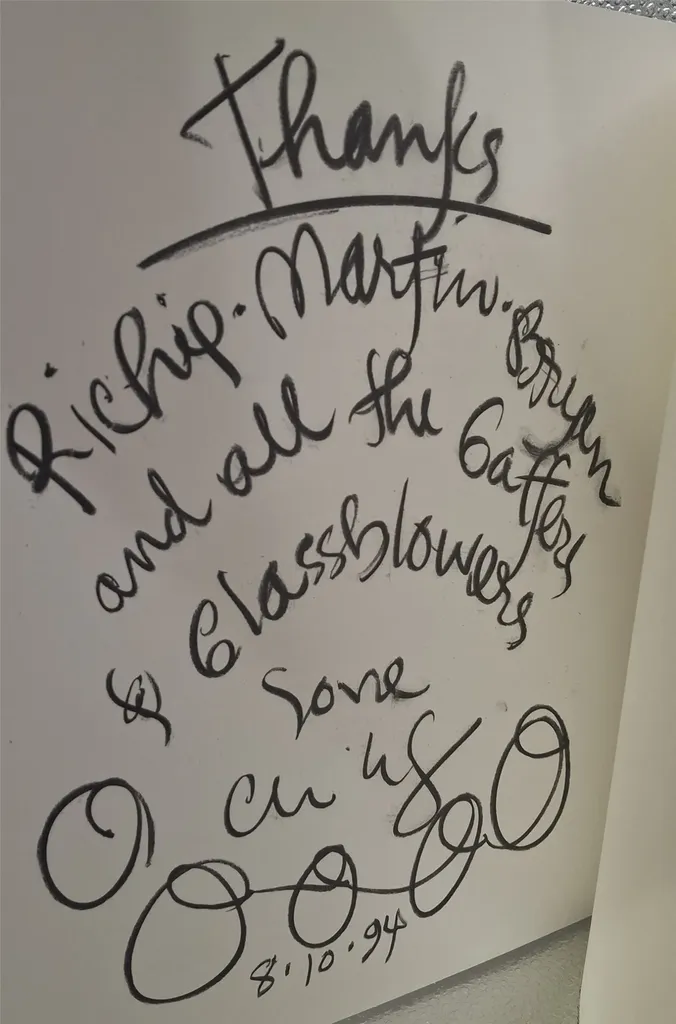 Thanks
Richip. Martin. Bryan
and all the Gaffers
& Glassblowers
8.10.94